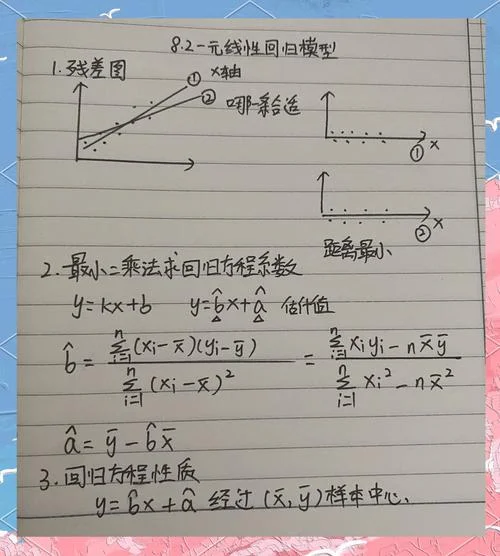 8.2一元线性回归模型
1.残差图
x轴
①
② 哪一条合适
x
①
x
②
距离最小
2.最小二乘法求回归方程系数
y=kx+b  y=b̂x+â 估计值
b̂ = \frac{\sum_{i=1}^{n}(x_i-x̄)(y_i-ȳ)}{\sum_{i=1}^{n}(x_i-x̄)^2} = \frac{\sum_{i=1}^{n}x_iy_i-nx̄ȳ}{\sum_{i=1}^{n}x_i^2-nx̄^2}
â=ȳ-b̂x̄
3.回归方程性质
y=b̂x+â 经过(x̄,ȳ)样本中心.